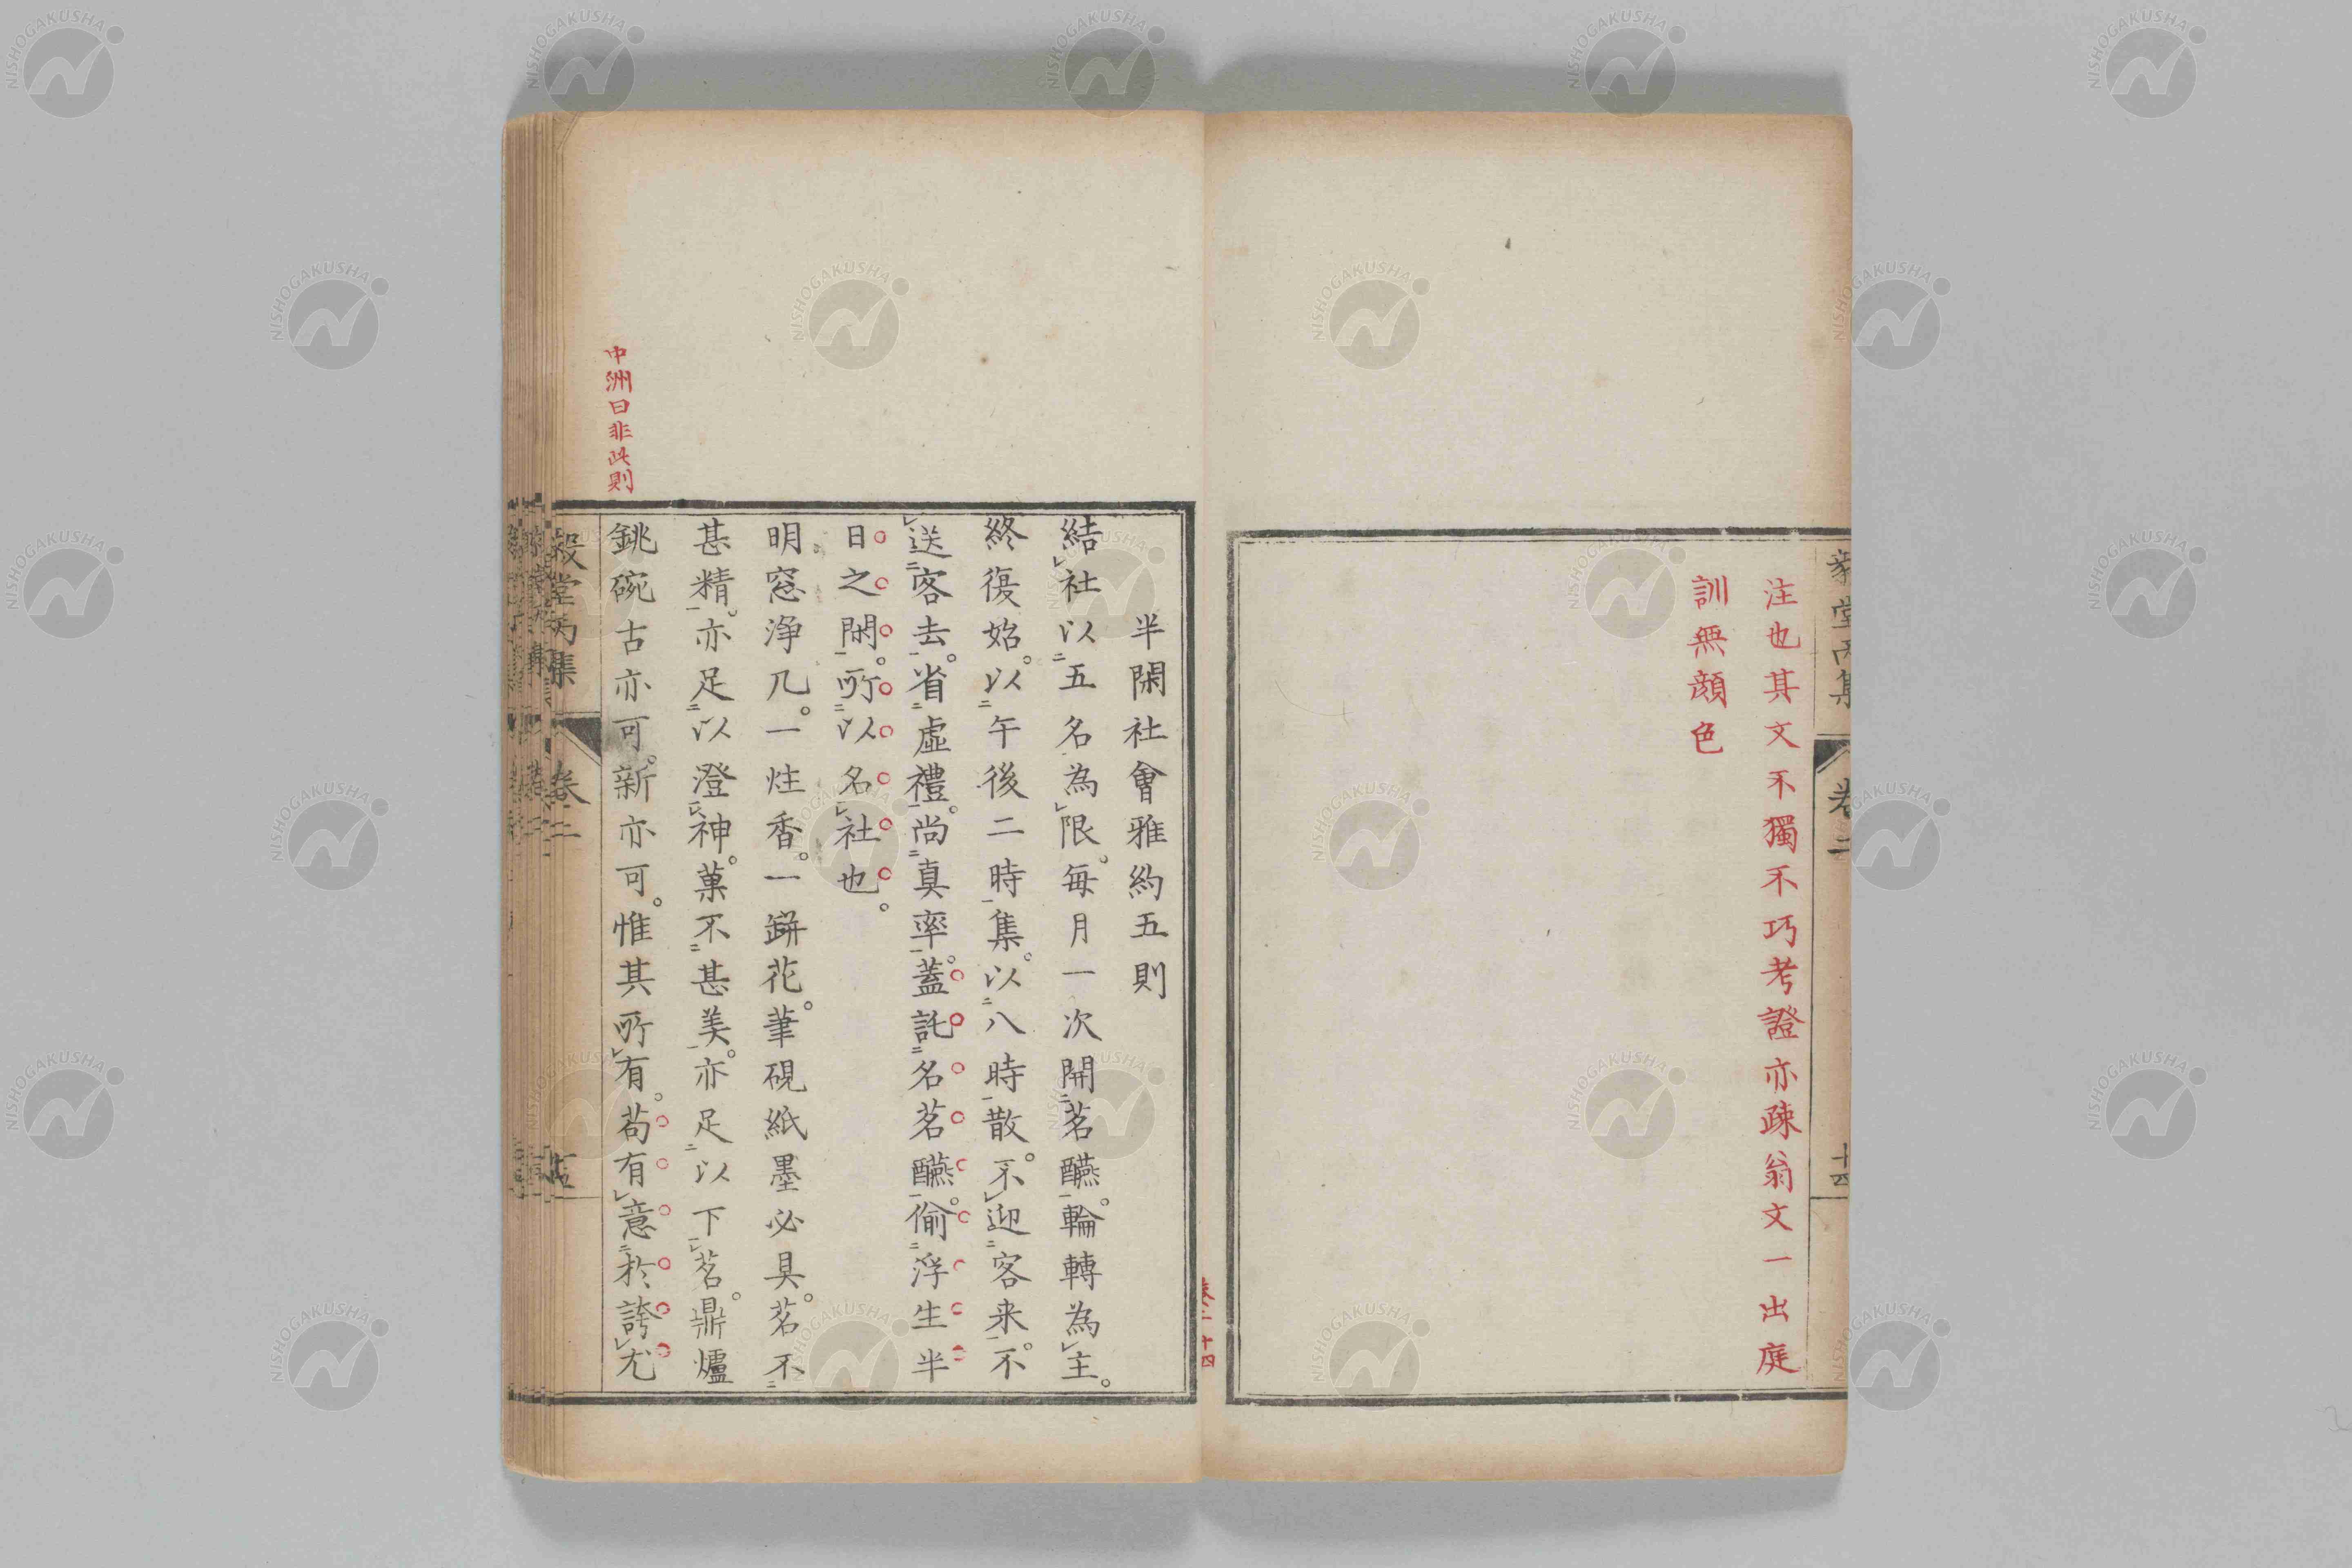 注也其文不獨不巧考證亦疎翁文一出庭
訓無顔色
卷二
十四
卷二 十四
半閑社會雅約五則
結社以五名為限。毎月一次開茗醼。輪轉為主。
終復始。以午後二時集。以八時散。不迎客来。不
送客去。省虛禮。尚真率。蓋託名茗醼。偷浮生半
日之閑。所以名社也。
明窓浄几。一炷香。一缾花。筆硯紙墨必具。茗不
甚精。亦足以澄神。菓不甚美。亦足以下茗。鼎爐
銚碗古亦可。新亦可。惟其所有。苟有意於誇尤
中洲曰非此則
毅堂丙集
卷二
NISHOGAKUSHA